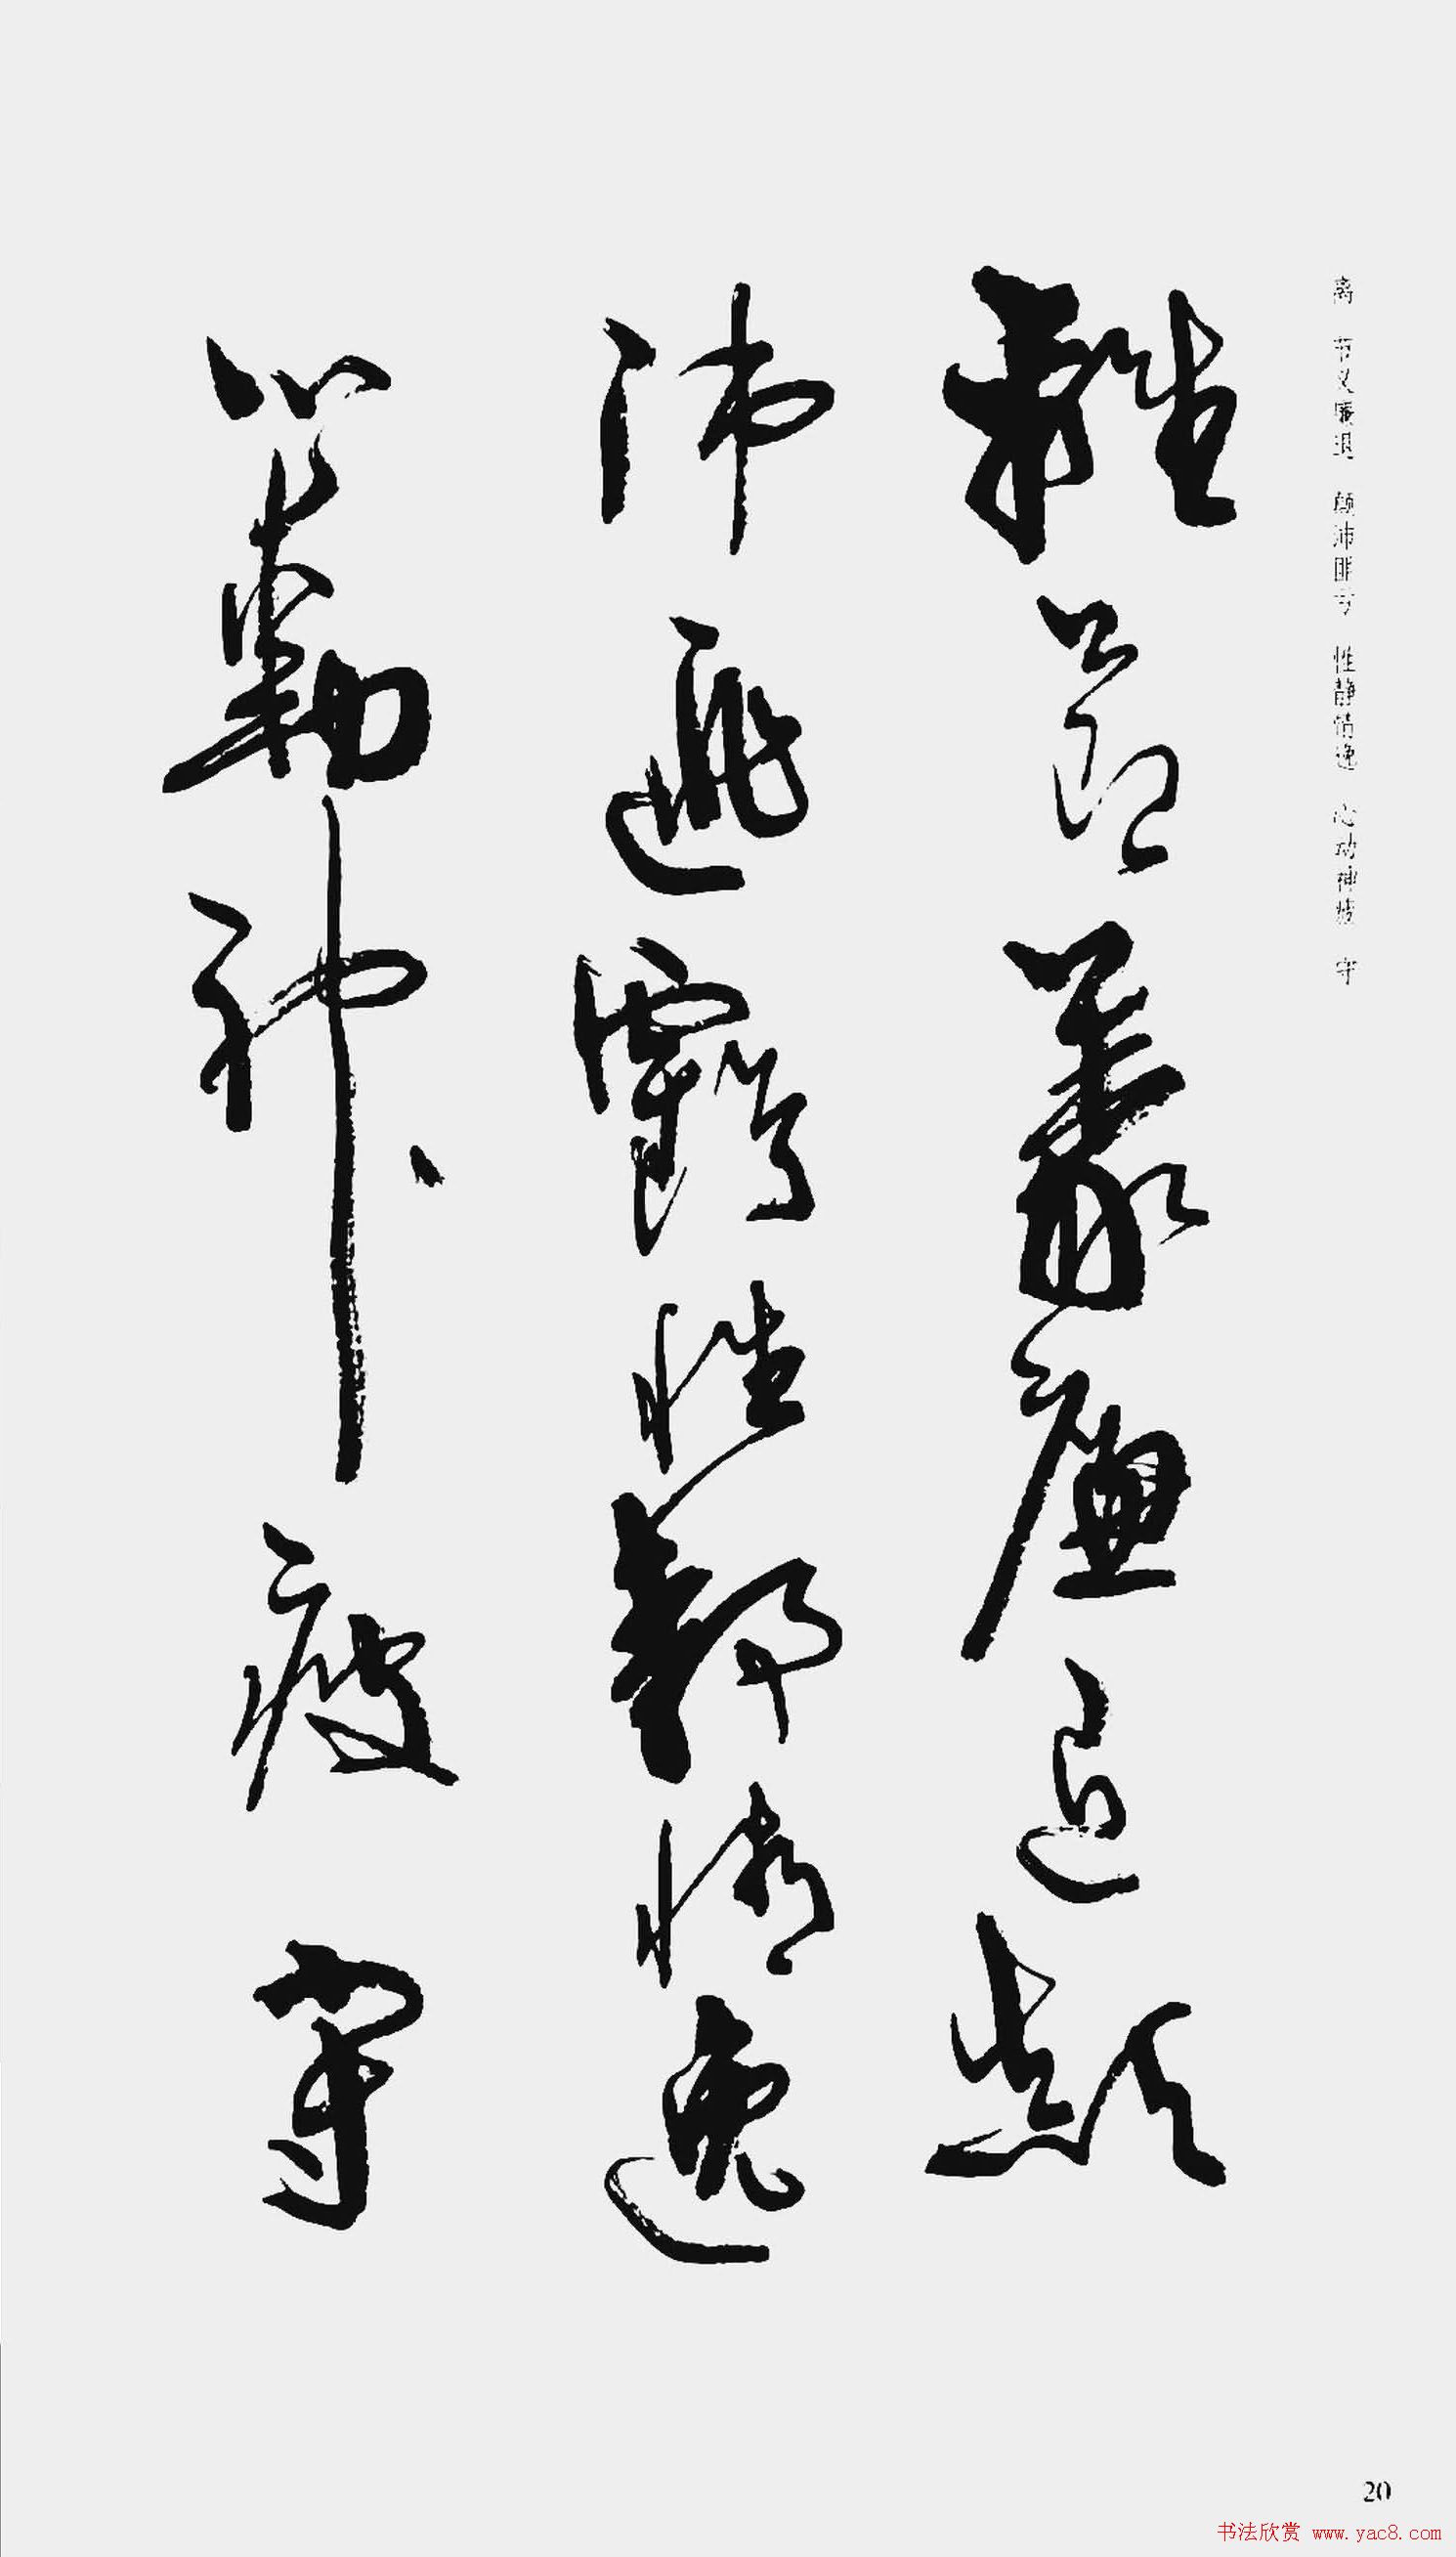 离 节义廉退 颠沛匪亏 性静情逸 心动神疲 守
離節義廉退顛
沛匪虧性靜情逸
心動神疲守
20
书法欣赏 www.yac8.com